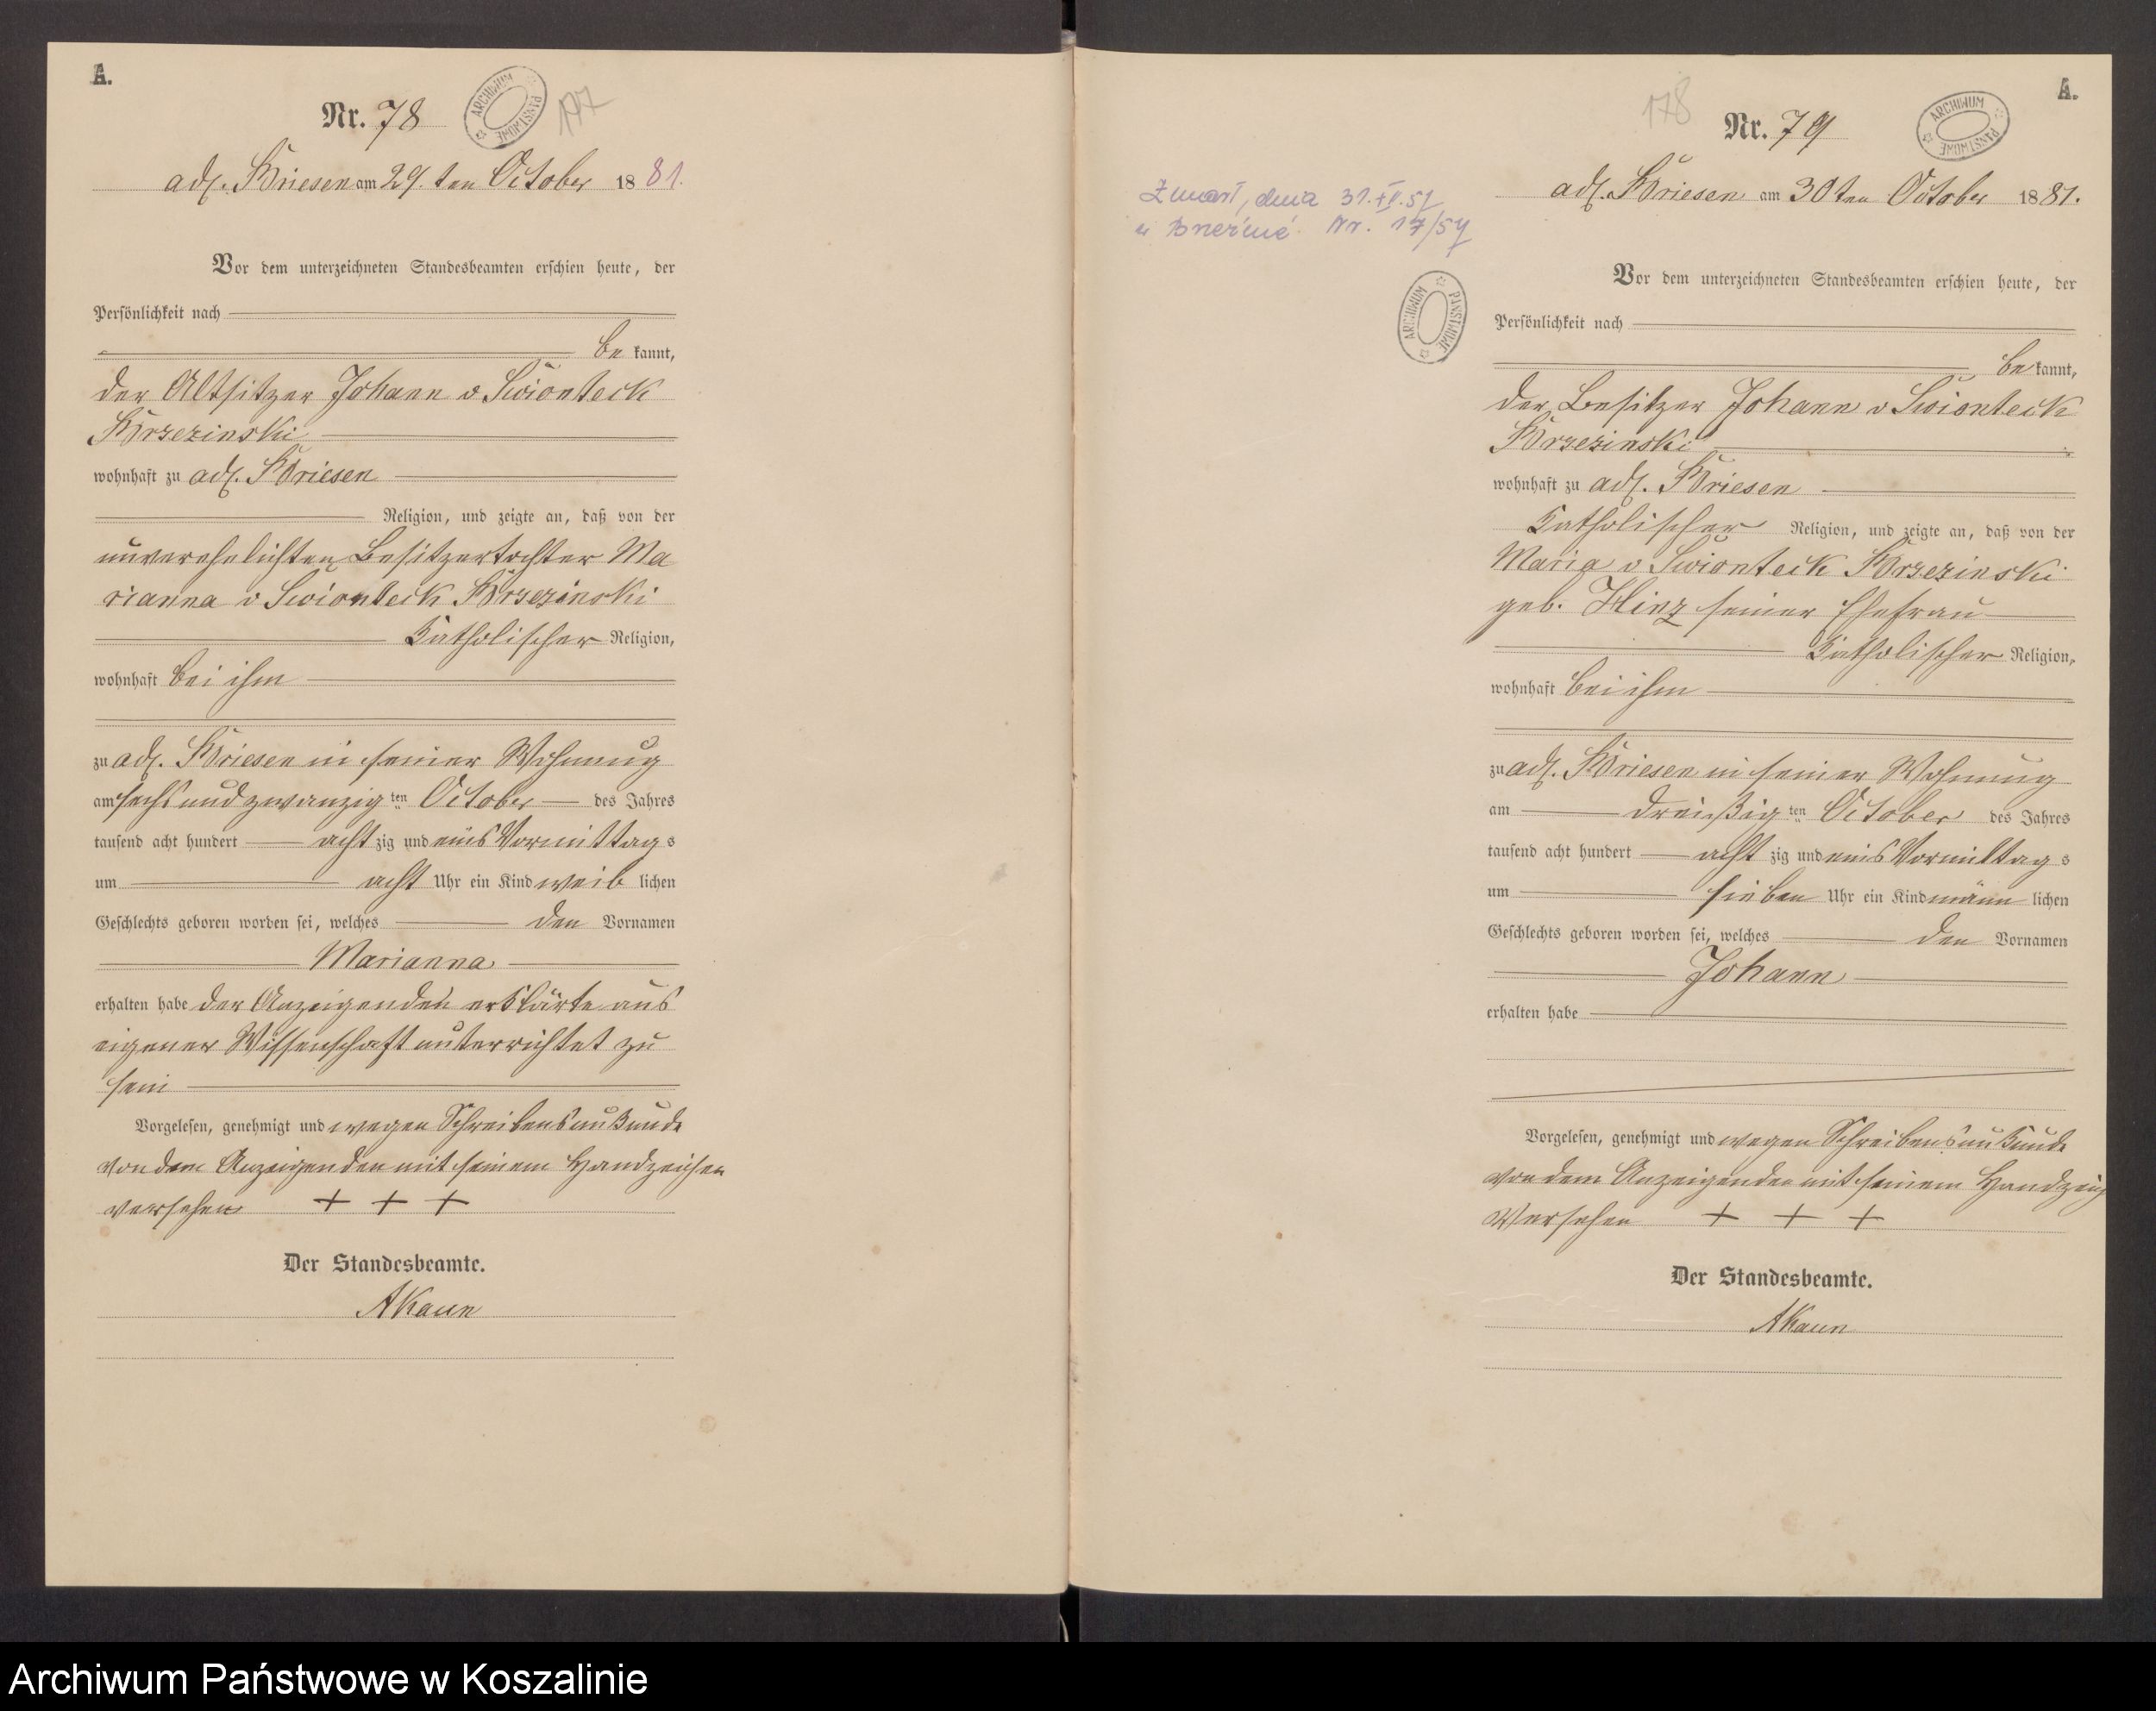 A.
Nr. 78
ARCHIWUM PAŃSTWOWE
177
adl. Briesen am 29. ten October 1881.
Vor dem unterzeichneten Standesbeamten erschien heute, der
Persönlichkeit nach
be kannt,
der Altsitzer Johann v Swionteck
Brzezinski
wohnhaft zu adl. Briesen
Religion, und zeigte an, daß von der
unverehelichten Besitzertochter Ma
rianna v Swionteck Brzezinski
Katholischer Religion,
wohnhaft bei ihm
zu adl. Briesen in seiner Wohnung
am sechsundzwanzig ten October des Jahres
tausend acht hundert acht zig und eins Vormittag s
um acht Uhr ein Kind weib lichen
Geschlechts geboren worden sei, welches den Vornamen
Marianna
erhalten habe der Anzeigenden erklärte aus
eigener Wissenschaft unterrichtet zu
sein
Vorgelesen, genehmigt und wegen Schreibensunkunde
von dem Anzeigenden mit seinem Handzeichen
versehen + + +
Der Standesbeamte.
AKaun
A.
178
Nr. 79
ARCHIWUM PAŃSTWOWE
adl. Briesen am 30 ten October 1881.
Zmarł, dnia 31.XII.57
w Brzeźnie Nr. 17/57
ARCHIWUM PAŃSTWOWE
Vor dem unterzeichneten Standesbeamten erschien heute, der
Persönlichkeit nach
be kannt,
der Besitzer Johann v Swionteck
Brzezinski
wohnhaft zu adl. Briesen
Katholischer Religion, und zeigte an, daß von der
Maria v Swionteck Brzezinski
geb. Hinz seiner Ehefrau
Katholischer Religion,
wohnhaft bei ihm
zu adl. Briesen in seiner Wohnung
am dreißig ten October des Jahres
tausend acht hundert acht zig und eins Vormittag s
um sieben Uhr ein Kind männ lichen
Geschlechts geboren worden sei, welches den Vornamen
Johann
erhalten habe
Vorgelesen, genehmigt und wegen Schreibensunkunde
von dem Anzeigenden mit seinem Handzeich
Versehen + + +
Der Standesbeamte.
AKaun
Archiwum Państwowe w Koszalinie